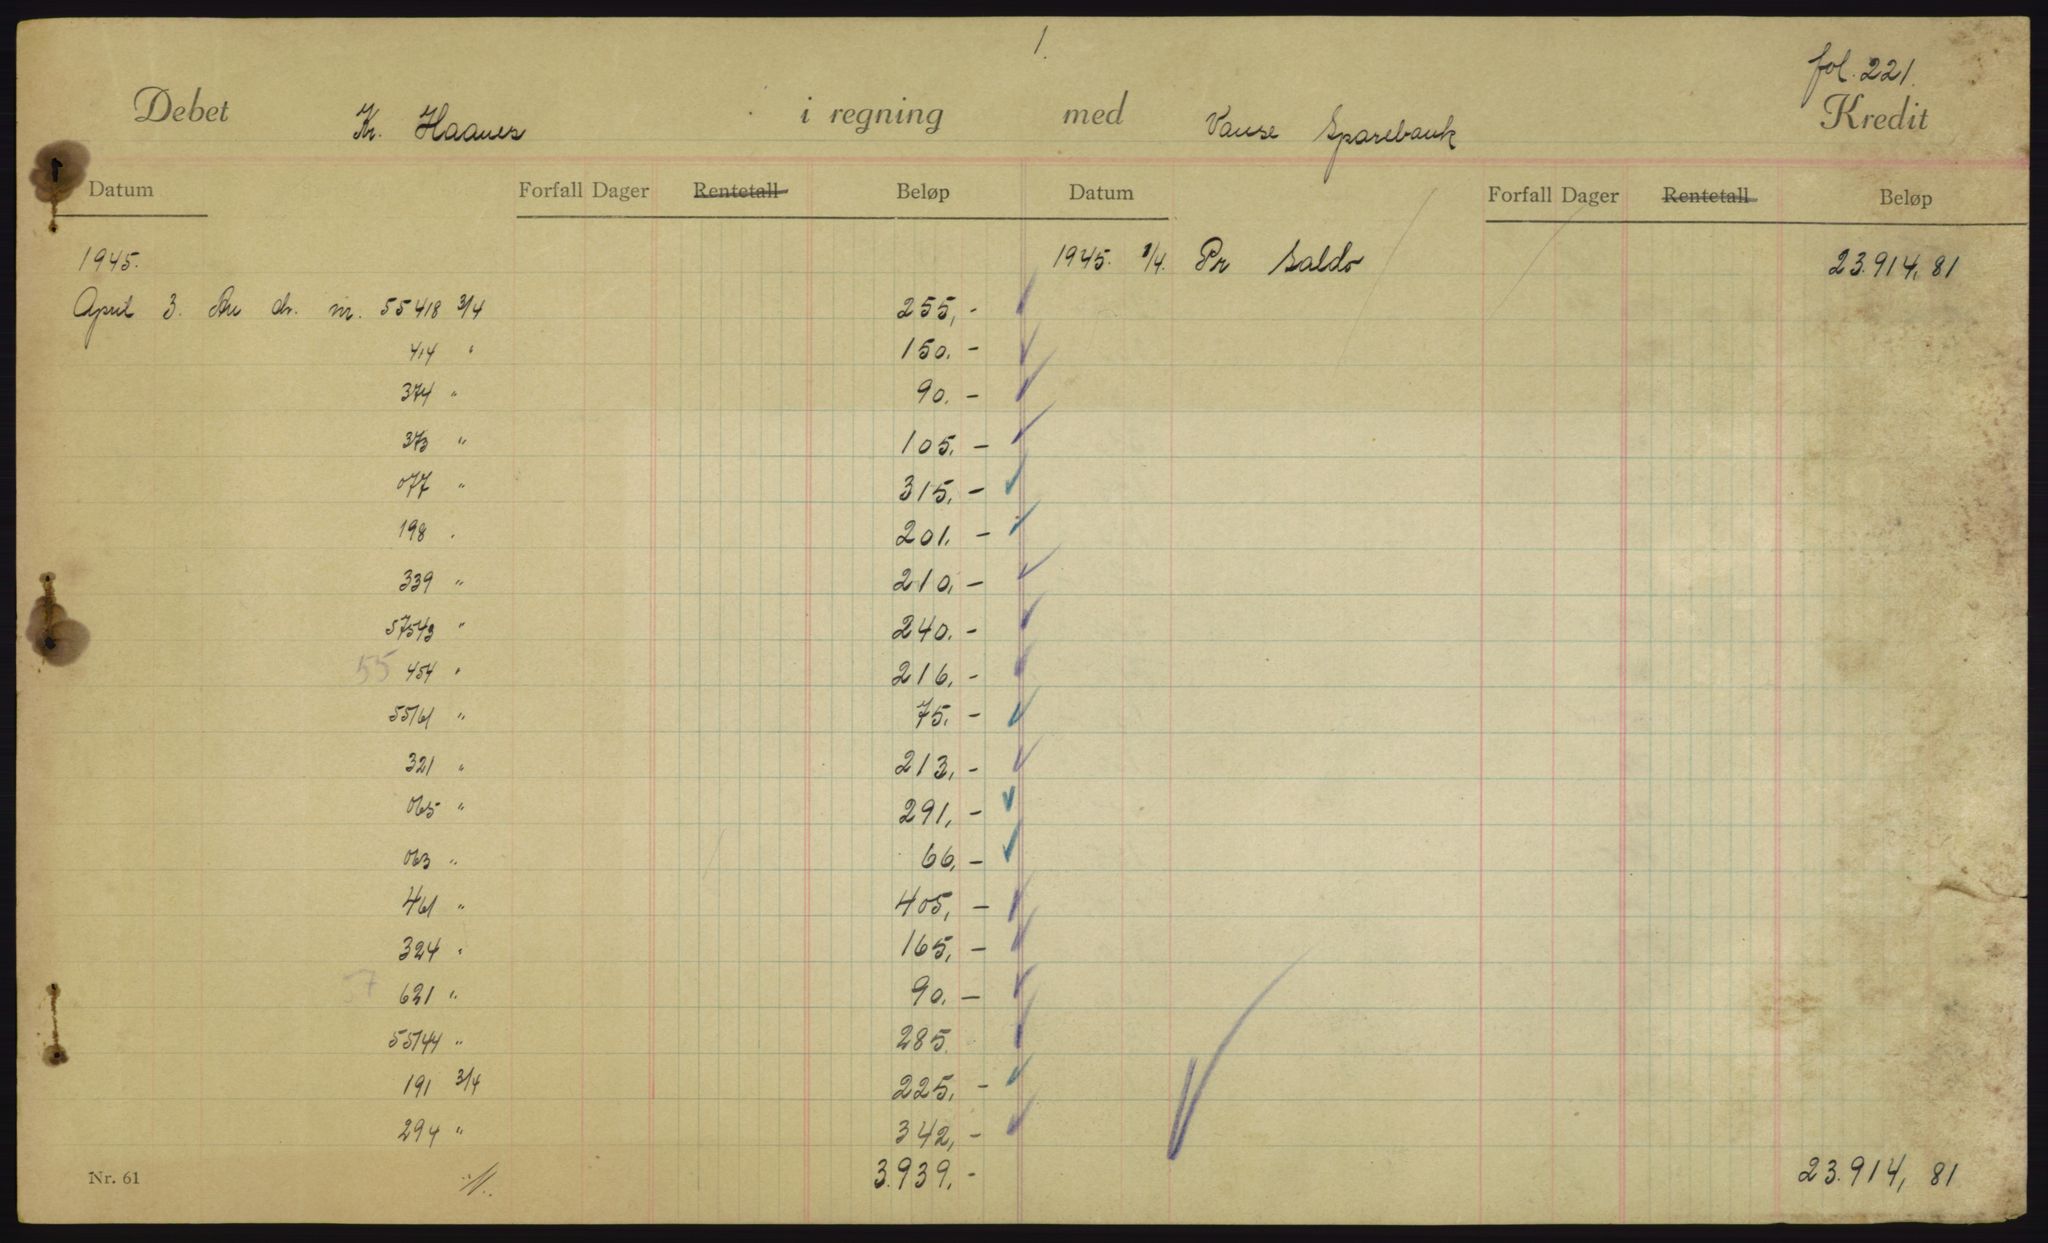 1.
fol. 221.
Debet Kr. Haanes i regning med Vanse Sparebank Kredit
Datum Forfall Dager Rentetall Beløp Datum Forfall Dager Rentetall Beløp
1945. 1945. 1/4. Pr Saldo 23.914,81
April 3. An ch. nr. 55418 3/4 255,-
414 " 150.-
374 " 90.-
373 " 105.-
077 " 315,-
198 " 201.-
339 " 210,-
57543 " 240.-
55 454 " 216,-
55161 " 75.-
321 " 213,-
065 " 291,-
063 " 66,-
461 " 405,-
324 " 165,-
57 621 " 90.-
55144 " 285.
191 3/4 225,-
294 " 342,-
Nr. 61 3.939,- 23.914,81